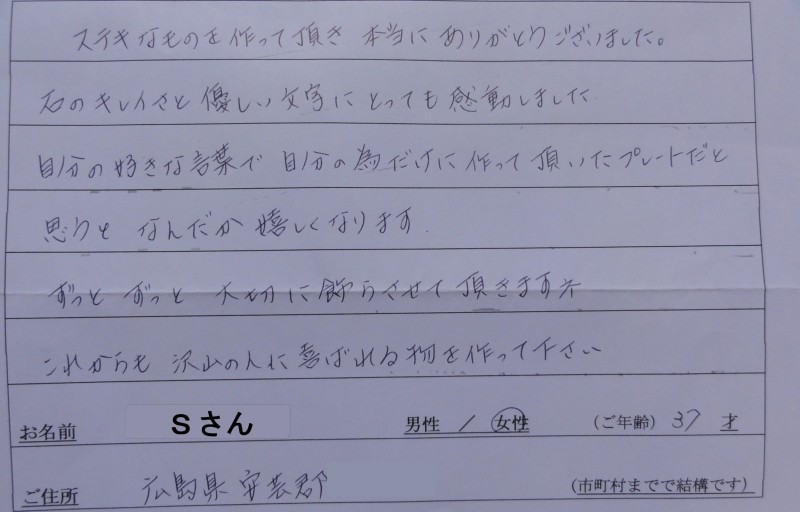 ステキなものを作って頂き 本当にありがとうございました。
石のキレイさと優しい文字にとっても感動しました
自分の好きな言葉で 自分の為だけに作って頂いたプレートだと
思うと なんだか嬉しくなります.
ずっと ずっと 大切に飾らさせて頂きます
これからも 沢山の人に喜ばれる物を作って下さい
お名前 Sさん 男性 / 女性 (ご年齢) 37 才
ご住所 広島県安芸郡 (市町村までで結構です)